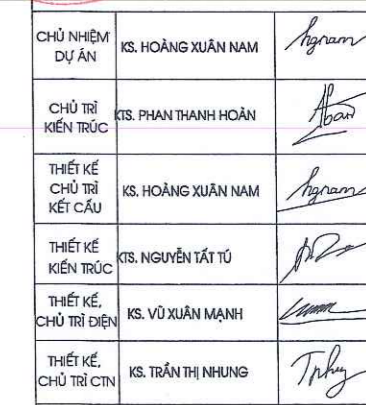 CHỦ NHIỆM
DỰ ÁN
KS. HOÀNG XUÂN NAM
CHỦ TRÌ
KIẾN TRÚC
KTS. PHAN THANH HOÀN
THIẾT KẾ
CHỦ TRÌ
KẾT CẤU
KS. HOÀNG XUÂN NAM
THIẾT KẾ
KIẾN TRÚC
KTS. NGUYỄN TẤT TÚ
THIẾT KẾ,
CHỦ TRÌ ĐIỆN
KS. VŨ XUÂN MẠNH
THIẾT KẾ,
CHỦ TRÌ CTN
KS. TRẦN THỊ NHUNG